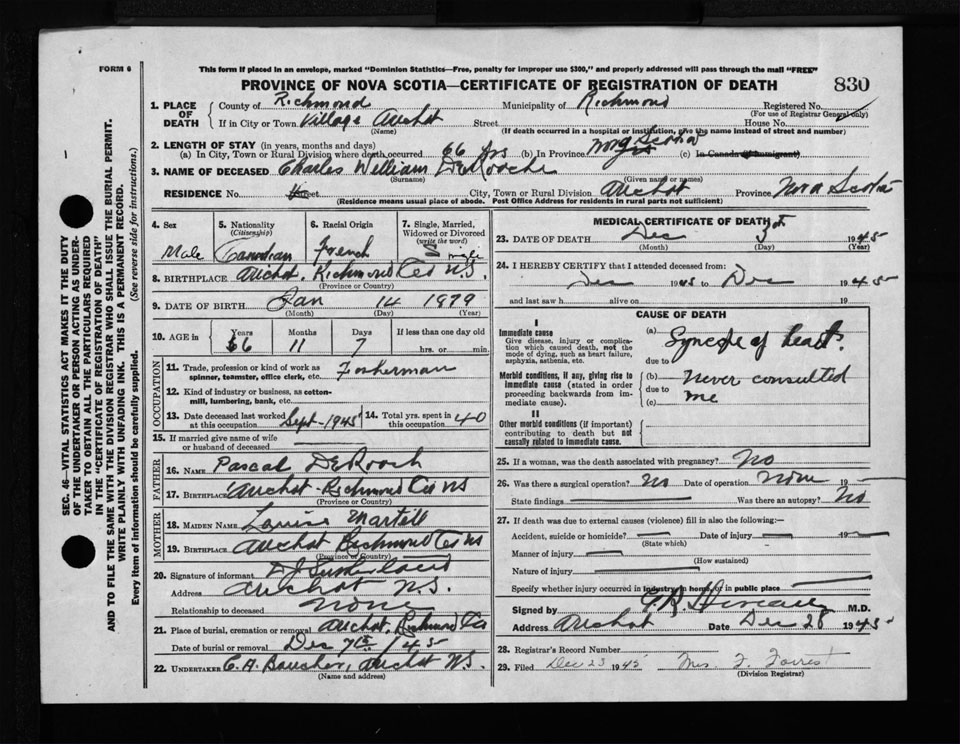 FORM 6
This form if placed in an envelope, marked "Dominion Statistics—Free, penalty for improper use $300," and properly addressed will pass through the mail "FREE"
PROVINCE OF NOVA SCOTIA—CERTIFICATE OF REGISTRATION OF DEATH 830
1. PLACE OF DEATH County of Richmond Municipality of Richmond Registered No.
(For use of Registrar General only)
If in City or Town Village Arichat Street House No.
(Name) (If death occurred in a hospital or institution, give the name instead of street and number)
2. LENGTH OF STAY (in years, months and days)
(a) In City, Town or Rural Division where death occurred 66 yrs (b) In Province Nova Scotia (c) In Canada (if immigrant)
3. NAME OF DECEASED Charles William DeRoche
(Surname) (Given name or names)
RESIDENCE No. Street City, Town or Rural Division Arichat Province Nova Scotia
(Residence means usual place of abode. Post Office Address for residents in rural parts not sufficient)
4. Sex Male
5. Nationality (Citizenship) Canadian
6. Racial Origin French
7. Single, Married, Widowed or Divorced (write the word) Single
8. BIRTHPLACE Arichat, Richmond Co N.S.
(Province or Country)
9. DATE OF BIRTH Jan 14 1879
(Month) (Day) (Year)
10. AGE in Years 66 Months 11 Days 7 If less than one day old hrs. or min.
OCCUPATION
11. Trade, profession or kind of work as spinner, teamster, office clerk, etc.
12. Kind of industry or business, as cotton-mill, lumbering, bank, etc.
13. Date deceased last worked at this occupation Sept-1945
14. Total yrs. spent in this occupation 40
15. If married give name of wife or husband of deceased
FATHER
16. NAME Pascal DeRoch
17. BIRTHPLACE Arichat-Richmond Co NS
(Province or Country)
MOTHER
18. MAIDEN NAME Louise Martell
19. BIRTHPLACE Arichat Richmond Co NS
(Province or Country)
20. Signature of informant
Address Arichat N.S.
Relationship to deceased None
21. Place of burial, cremation or removal Arichat, Richmond Co
Date of burial or removal Dec 7th 1945
22. UNDERTAKER C.A. Boucher, Arichat N.S.
(Name and address)
MEDICAL CERTIFICATE OF DEATH
23. DATE OF DEATH Dec 1945
(Month) (Day) (Year)
24. I HEREBY CERTIFY that I attended deceased from:
Dec 1945 to Dec 1945
and last saw h alive on 19
CAUSE OF DEATH
I
Immediate cause
Give disease, injury or complication which caused death, not the mode of dying, such as heart failure, asphyxia, asthenia, etc.
(a) Syncope of heart.
due to
Morbid conditions, if any, giving rise to immediate cause (stated in order proceeding backwards from immediate cause).
(b) Never consulted
due to
(c) me
II
Other morbid conditions (if important) contributing to death but not causally related to immediate cause.
25. If a woman, was the death associated with pregnancy? No
26. Was there a surgical operation? No Date of operation None 19
State findings Was there an autopsy? No
27. If death was due to external causes (violence) fill in also the following:—
Accident, suicide or homicide? Date of injury 19
(State which)
Manner of injury
(How sustained)
Nature of injury
Specify whether injury occurred in industry, in home, or in public place
Signed by M.D.
Address Arichat Date Dec 28 1945
28. Registrar's Record Number
29. Filed Dec 23 1945 Mrs. F. Forrest
(Division Registrar)
SEC. 46—VITAL STATISTICS ACT MAKES IT THE DUTY
OF THE UNDERTAKER OR PERSON ACTING AS UNDER-
TAKER TO OBTAIN ALL THE PARTICULARS REQUIRED
IN THE "CERTIFICATE OF REGISTRATION OF DEATH"
AND TO FILE THE SAME WITH THE DIVISION REGISTRAR WHO SHALL ISSUE THE BURIAL PERMIT.
WRITE PLAINLY WITH UNFADING INK. THIS IS A PERMANENT RECORD.
Every item of information should be carefully supplied. (See reverse side for instructions.)